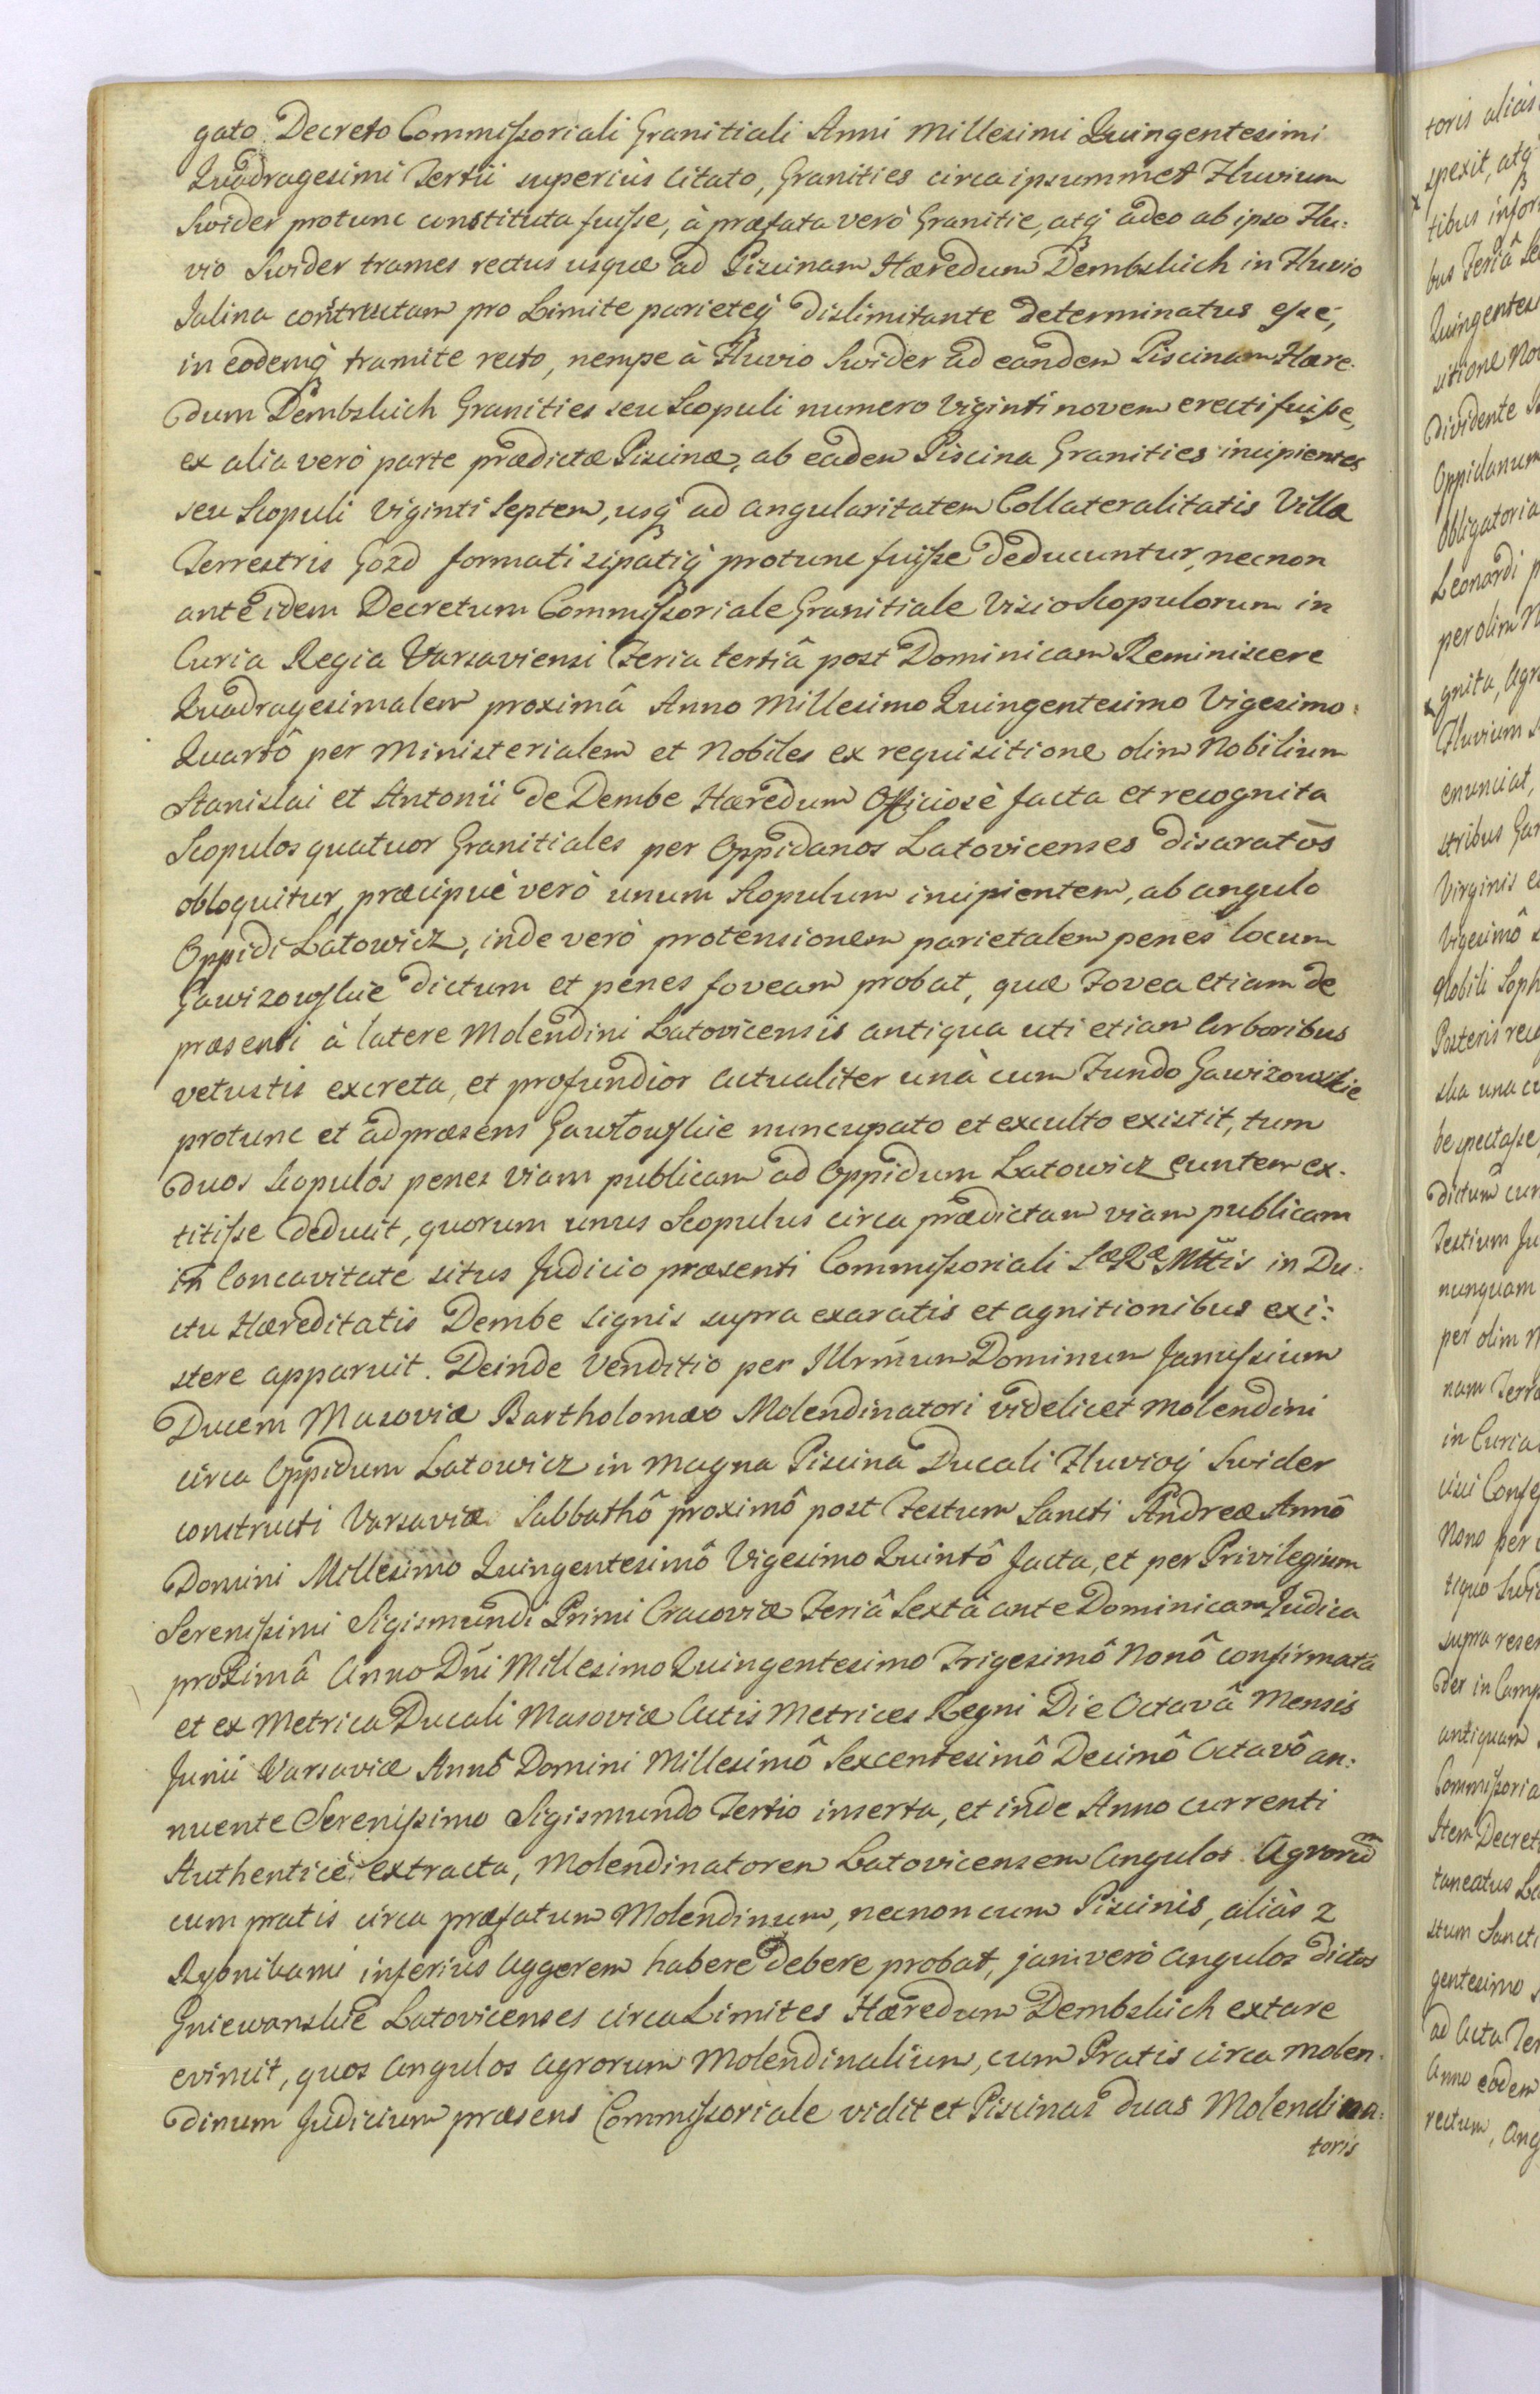 gato Decreto Commissoriali Granitiali Anni Millesimi Quingentesimi
Quadragesimi Tertii superiùs citato, Granities circa ipsummet Fluvium
Swider protunc constituta fuisse, à præfata verò Granitie, atq́ adeo ab ipso Flu:
vio Swider trames rectus usque ad Piscinam Hæredum Dembskich in Fluvio
Jalina constructam pro Limite parieteq́ dislimitante determinatus esse,
in eodemq́ tramite recto, nempe à Fluvio Swider ad eandem Piscinam Hære-
dum Dembskich Granities seu Scopuli numero Viginti novem erecti fuisse,
ex alia verò parte prædictæ Piscinæ, ab eadem Piscina Granities incipientes
seu Scopuli Viginti Septem, usq́ ad angularitatem Collateralitatis Villæ
Terrestris Gozd formati sipatiq́ protunc fuisse deducuntur, necnon
ante idem Decretum Commissoriale Granitiale Visio Scopulorum in
Curia Regia Varsaviensi Feria tertiâ post Dominicam Reminiscere
Quadragesimalem proximâ Anno Millesimo Quingentesimo Vigesimo
Quartô per Ministerialem et Nobiles ex requisitione olim Nobilium
Stanislai et Antonii de Dembe Hæredum Officiosè facta et recognita
Scopulos quatuor Granitiales per Oppidanos Latovicenses disaratos
obloquitur, præcipuè verò unum Scopulum incipientem, ab angulo
Oppidi Latowicz, inde verò protensionem parietalem penes locum
Gawizowskie dictum et penes foveam probat, quæ Fovea etiam de
præsenti à latere Molendini Latovicensis antiqua uti etiam Arboribus
vetustis excreta, et profundior actualiter unà cum Fundo Gawizowskie
protunc et ad præsens Gawłowskie nuncupato et exculto existit, tum
duos Scopulos penes viam publicam ad Oppidum Latowicz euntem ex-
titisse deducit, quorum unus Scopulus circa prædictam viam publicam
in Concavitate situs Judicio præsenti Commissoriali Sæ Ræ Mttis in Du:
ctu Hæreditatis Dembe signis supra exaratis et agnitionibus exi:
stere apparuit. Deinde Venditio per Illrmum Dominum Janussium
Ducem Masoviæ Bartholomæo Molendinatori videlicet molendini
circa Oppidum Latowicz in magna Piscina Ducali Fluvioq́ Swider
constructi Varsaviæ Sabbathô proximô post Festum Sancti Andreæ Annô
Domini Millesimo Quingentesimô Vigesimo Quintô facta, et per Privilegium
Serenissimi Sigismundi Primi Cracoviæ Feriâ Sextâ ante Dominicam Judica
proximâ Anno Dni Millesimo Quingentesimo Trigesimô Nonô confirmata
et ex Metrica Ducali Masoviæ Actis Metrices Regni Die Octavâ Mensis
Junii Varsaviæ Annô Domini Millesimô Sexcentesimô Decimô Octavô an:
nuente Serenissimo Sigismundo Tertio inserta, et inde Anno currenti
Authenticè extracta, Molendinatorem Latovicensem Angulos Agrorum
cum pratis circa præfatum Molendinum, necnon cum Piscinis, aliàs z
Rybnikami inferius Aggerem habere debere probat, jam verò Angulos dictos
Gniewanskie Latovicenses circa Limites Hæredum Dembskich extare
evincit, quos Angulos Agrorum Molendinalium, cum Pratis circa molen-
dinum Judicium præsens Commissoriale vidit et Piscinas duas Molendina:
toris